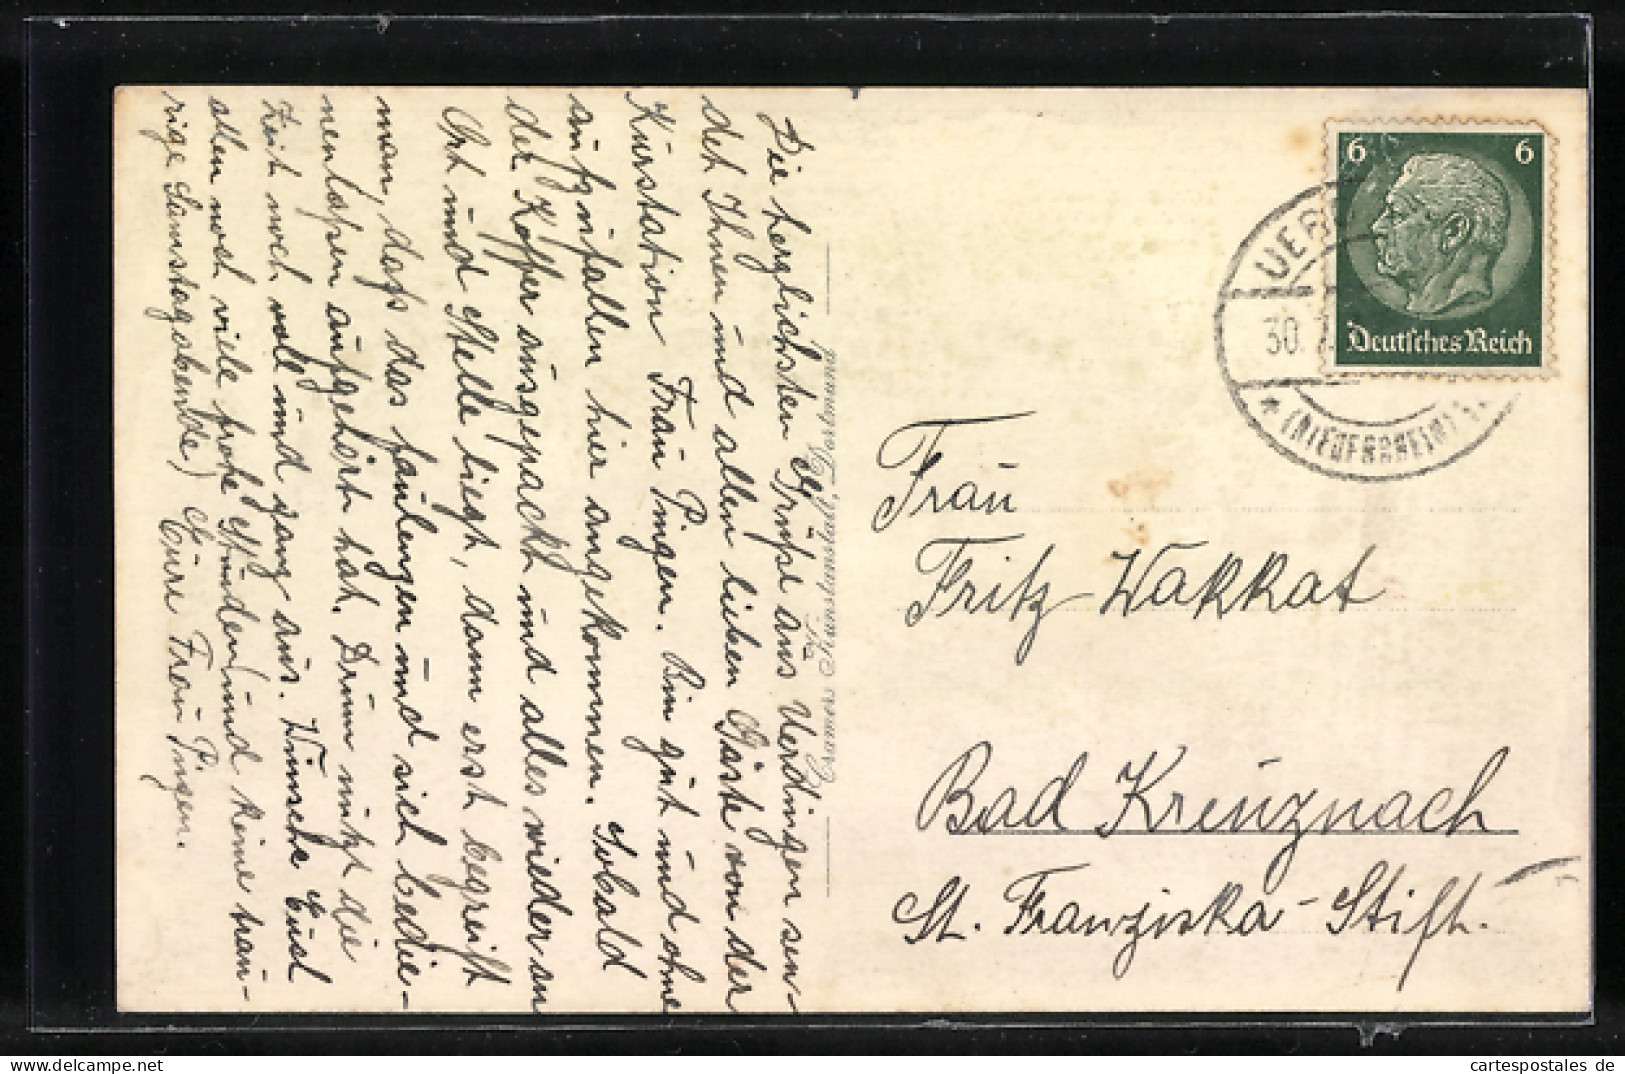 Die herzlichsten Grüße aus Uerdingen sen-
det Ihnen und allen lieben Gäste von der
Kurstation Frau Pingen. Bin gut und ohne
aufzufallen hier angekommen. Sobald
der Koffer ausgepackt und alles wieder an
Ort und Stelle liegt, dann erst begreift
man, dass das faulenzen und sich bedie-
nenlassen aufgehört hat. Drum nutzt die
Zeit noch voll und ganz aus. Wünsche Euch
allen noch viele frohe Stunden (und keine trau-
rige Samstagabende) Eure Frau Pingen.
Cramers Kunstanstalt, Dortmund
6
6
Deutsches Reich
UER
30.
(NIEDERRHEIN)
Frau
Fritz Wakkat
Bad Kreuznach
St. Franziska-Stift.
cartespostales de